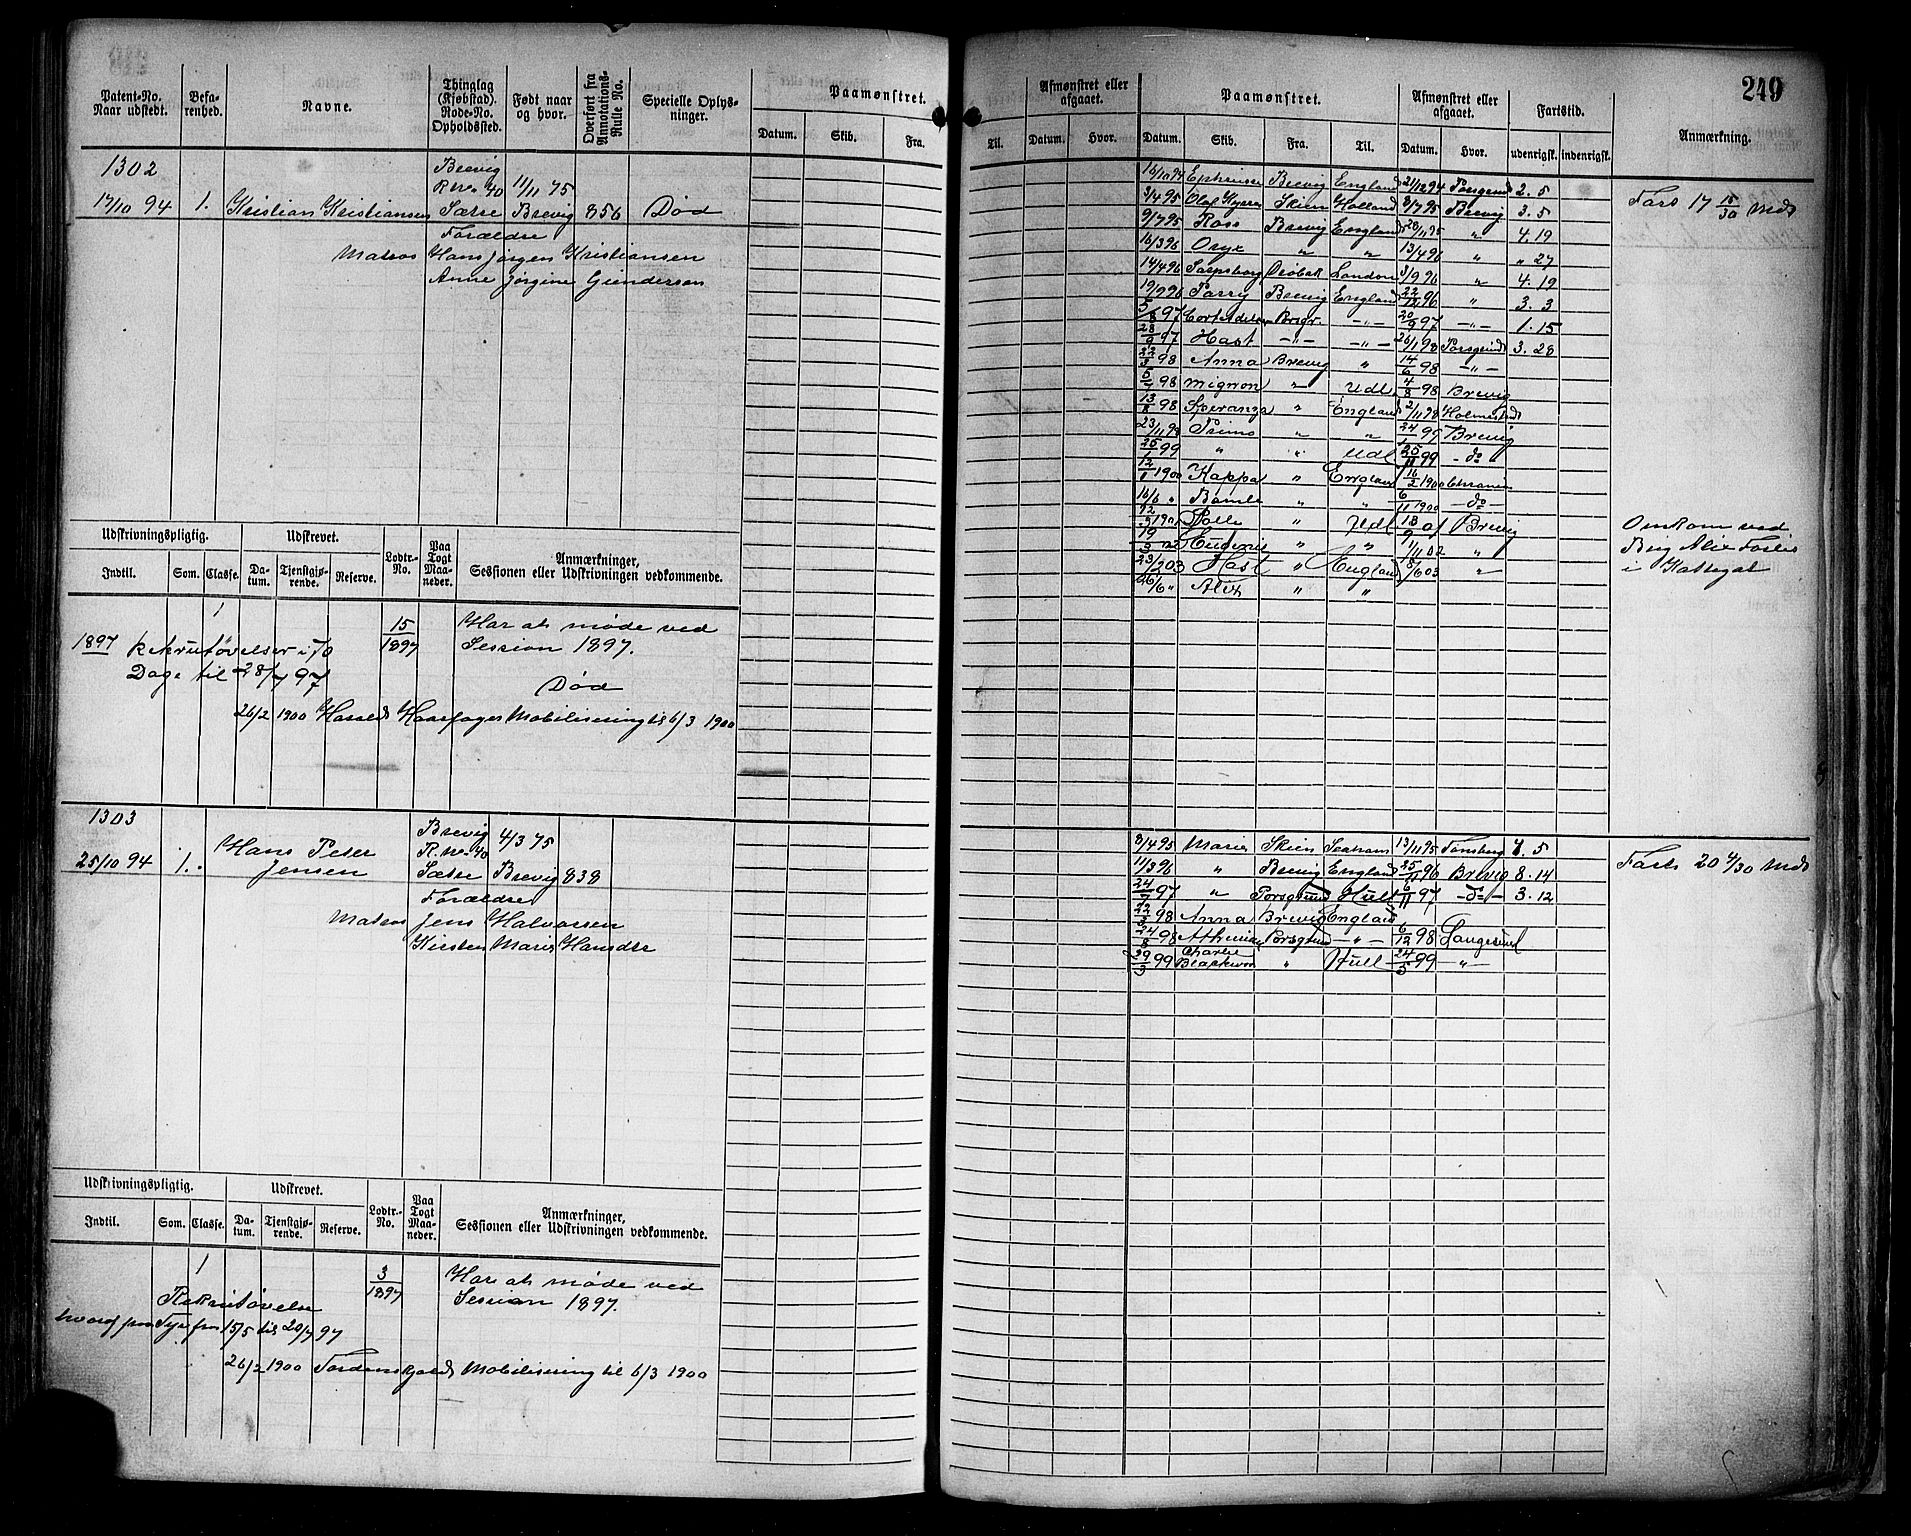 249
Patent-No. Naar udstedt. Befarenhed. Navne. Thinglag (Kjøbstad). Rode-No. Opholdssted. Født naar og hvor. Overført fra Annotations-Rulle No. Specielle Oplysninger. Paamønstret. Datum. Skib. Fra.
1302 Brevig
R No 40 11/11 75
17/10 94 1. Kristian Kristiansen Sætre Brevig 856 Død
Forældre
Matros Hans Jørgen Kristiansen
Anne Jørgine Gundersen
Udskrivningspligtig. Udskrevet. Lodtr.-No. Paa Togt Maaneder. Anmærkninger, Sessionen eller Udskrivningen vedkommende.
Indtil. Som. Classe. Datum. Tjenstgjørende. Reserve.
1 15/1897 Har at møde ved
1897 Rekrutøvelser i 70 Session 1897.
Dage til 28/7 97
Død
26/2 1900 Harald Haarfager Mobilisering til 6/3 1900
1303 Brevig 4/3 75
R. No 40
25/10 94 1. Hans Peter Jensen Sætre Brevig 838
Forældre
Matros Jens Halvorsen
Kirsten Marie Hansdtr
Udskrivningspligtig. Udskrevet. Lodtr.-No. Paa Togt Maaneder. Anmærkninger, Sessionen eller Udskrivningen vedkommende.
Indtil. Som. Classe. Datum. Tjenstgjørende. Reserve.
1 3/1897 Har at møde ved
Rekrutøvelse Session 1897.
fra 15/5 til 20/7 97
26/2 1900 Tordenskjold Mobilisering til 6/3 1900
Afmønstret eller afgaaet. Paamønstret. Afmønstret eller afgaaet. Fartstid. Anmærkning.
Til. Datum. Hvor. Datum. Skib. Fra. Til. Datum. Hvor. udenrigsk. indenrigsk.
16/10 94 Brevig England 21/12 94 Porsgrund 2. 5 Fart 17 15/30 Mdr
3/4 95 Olaf Kyrre Skien Holland 8/7 95 Brevig 3. 5
9/7 95 Ross Brevig England 28/11 95 " 4. 19
16/3 96 Oryx " " 13/4 96 " " 27
14/4 96 Sarpsborg Drøbak London 3/9 96 " 4. 19
19/9 96 Parry Brevig England 22/12 96 " 3. 3
5/8 97 Cort Adeler Brvgr. -"- 20/9 97 -"- 1. 15
28/9 97 Hast -"- -"- 26/1 98 Porsgrund 3. 28
22/3 98 Anna Brevig " 14/6 98 -"-
5/7 98 Mignon " Udl 4/8 98 Brevig
13/8 98 Speranza " England 2/11 98 Holmestrand
23/11 98 Primo " " 24/1 99 Brevig
25/1 99 " " Udl 25/11 99 -do-
12/1 1900 Kappa " England 16/2 1900
16/6 " Bamle " " 6/11 1900 -do-
" Udl Brevig
" " 11/11 02 "
23/2 03 Hast " England 8/6 03 "
26/6 " Alix " "
Omkom ved
Brig Alix Forlis
i Kattegat
3/4 95 Marie Skien Seaham 13/11 95 Tønsberg 7. 5 Fart 20 4/30 Mdr
11/3 96 " Brevig England 25/11 96 Brevig 8. 14
24/7 97 " Porsgrund Hull 6/11 97 -do- 3. 12
22/3 98 Anna Brevig England
24/8 98 Porsgrund -"- 6/12 98 Langesund
29/3 99 Charlie " Hull 24/5 99 -"-